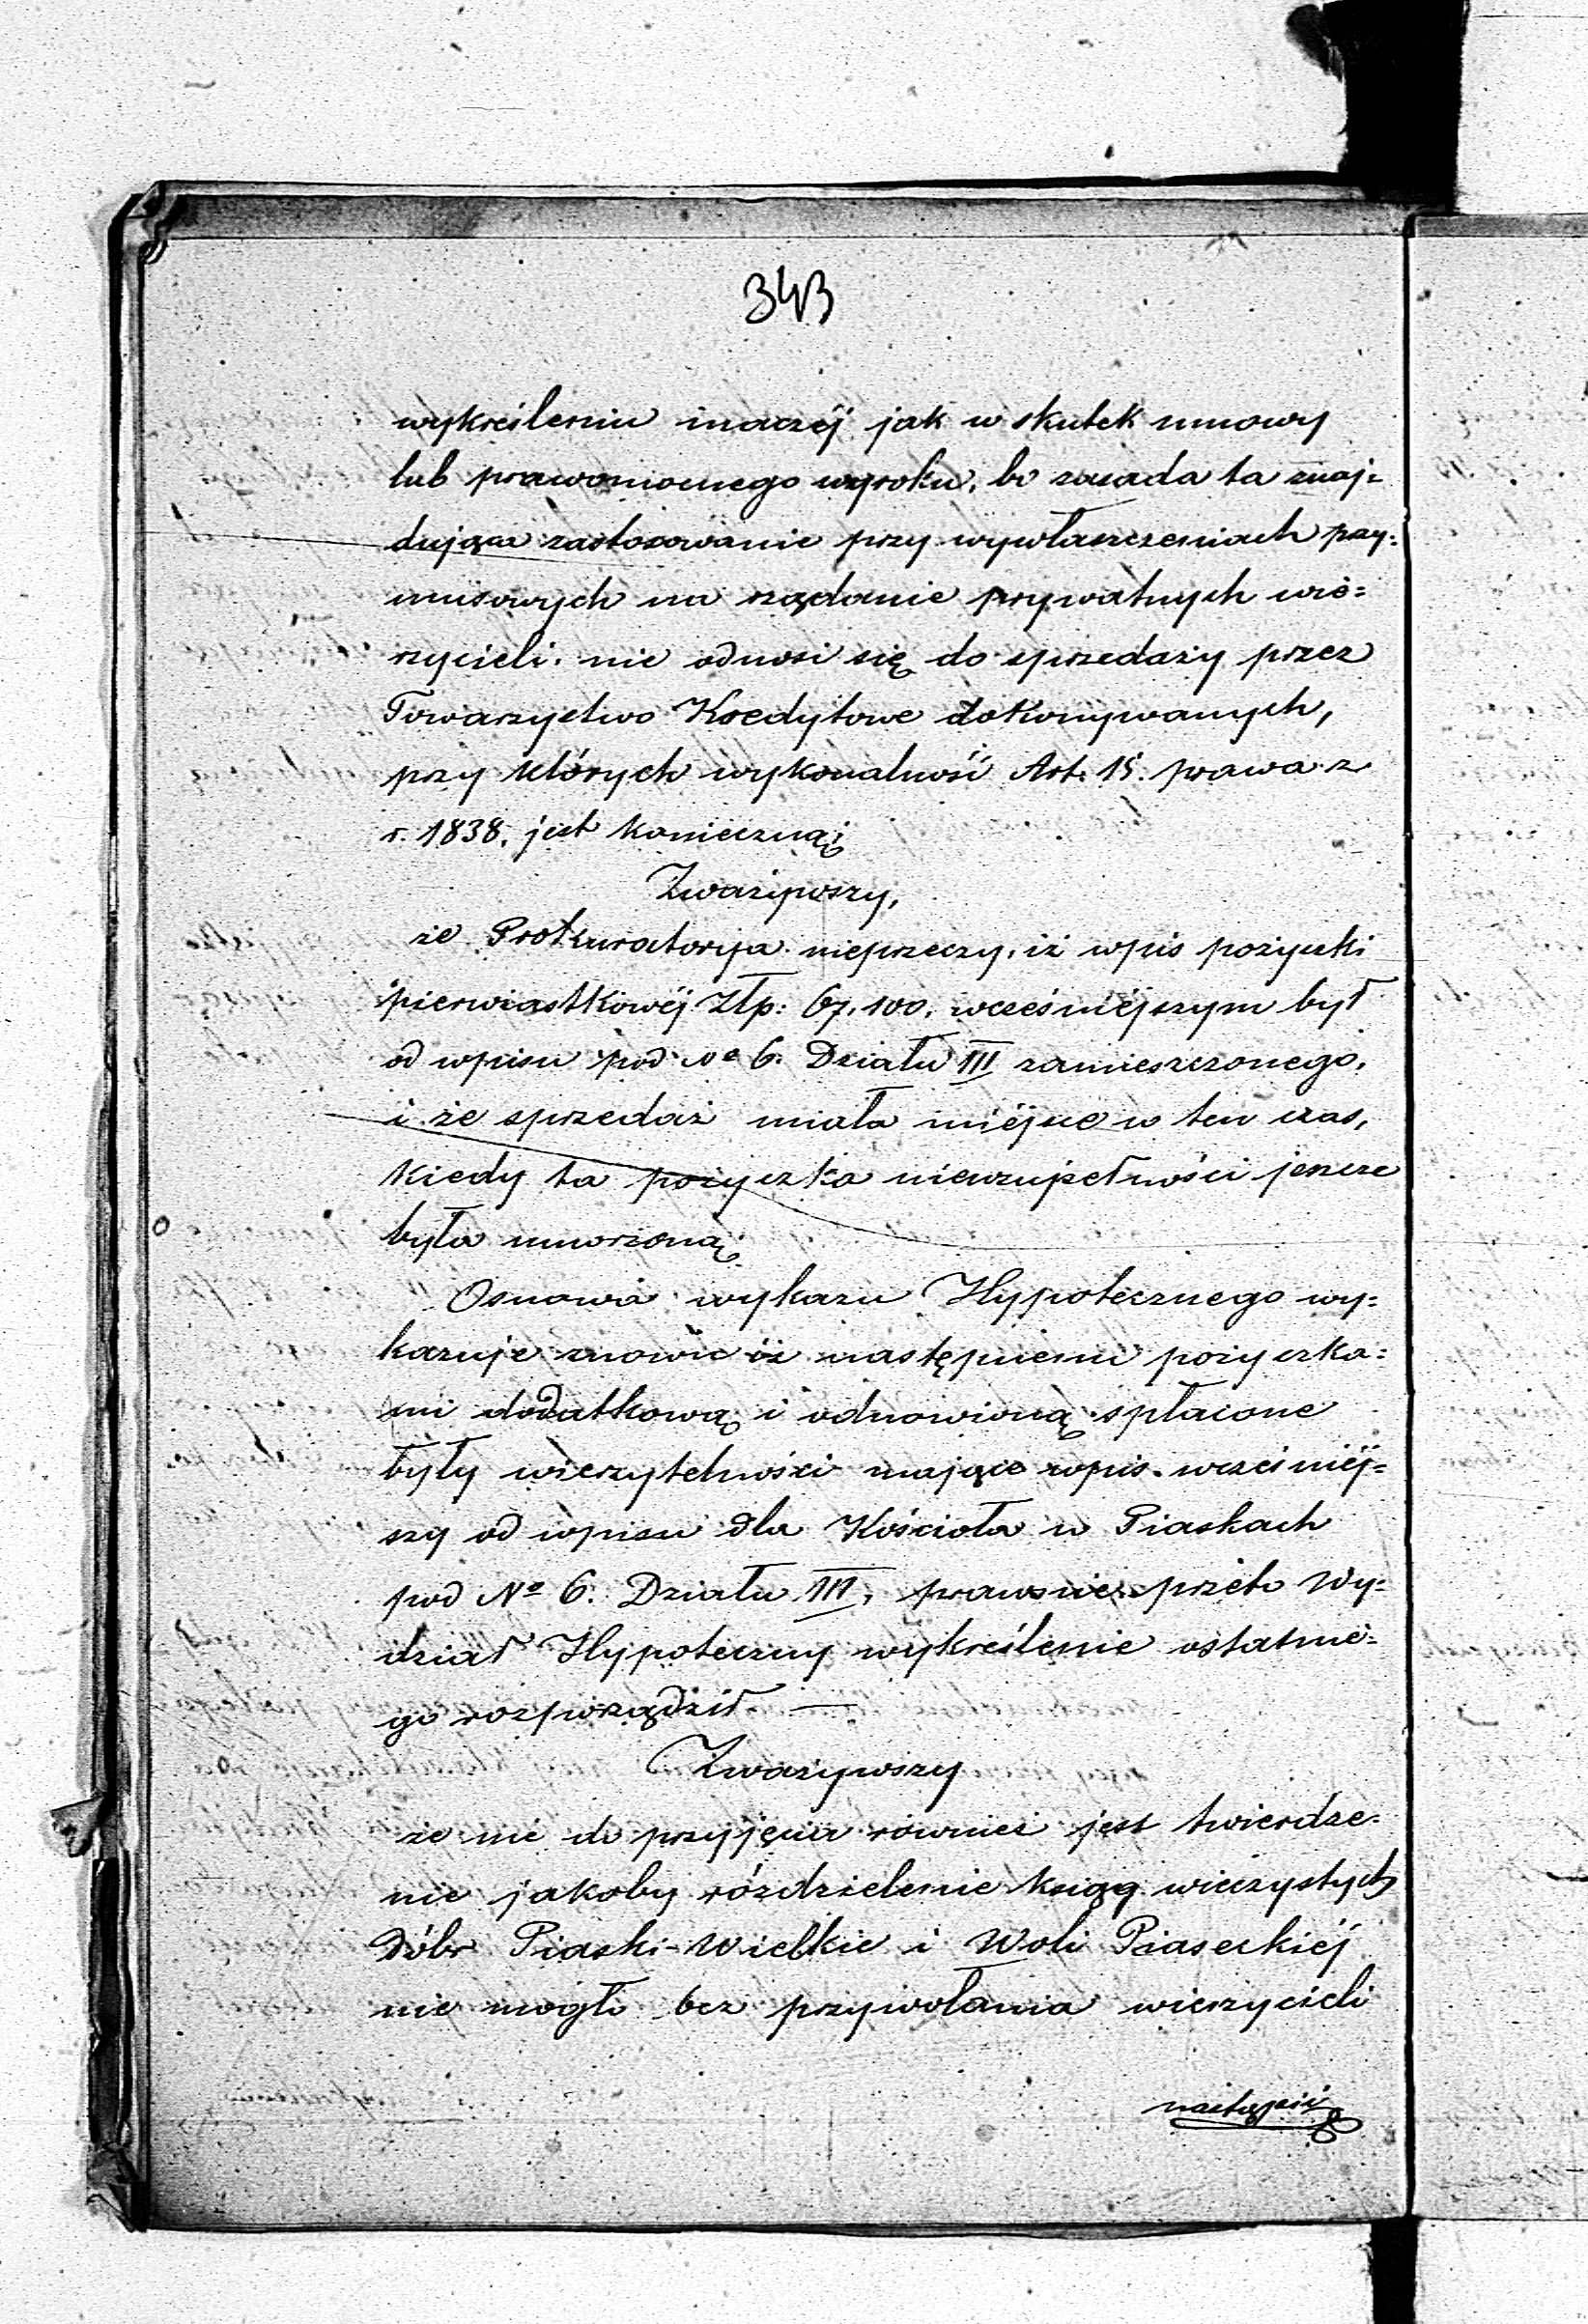 343
wykreśleniu inaczéj jak w skutek umowy
lub prawomocnego wyroku, bo zasada ta znaj=
dująca zastosowanie przy wywłaszczeniach przy=
musowych na rządanie prywatnych wie=
rzycieli. nie odnosi się do sprzedaży przez
Towarzystwo Kredytowe dokonywanych,
przy których wykonalność Art. 15. prawa z
r. 1838. jest konieczną;
Zważywszy,
że Prokuratorya nieprzeczy, iż wpis pożyczki
pierwiastkowéj Złp: 67,100, wcześniéjszym był
od wpisu pod No 6. Działu III zamieszczonego,
i że sprzedaż miała miéjsce w ten czas,
kiedy ta pożyczka niewzupełności jeszcze
była umorzoną;
Osnowa wykazu Hypotecznego wy=
kazuje znowu iż następnemi pożyczka=
mi dodatkową i odnowioną spłacone
były wierzytelności mające wpis wcześniéj=
szy od wpisu dla Kościoła w Piaskach
pod No 6. Działu III, prawnie przeto Wy=
dział Hypoteczny wykreślenie ostatnie=
go rozporządził —
Zważywszy
że nie do przyjęcia również jest twierdze=
nie jakoby rózdzielenie ksiąg wieczystych
Dóbr Piaski-Wielkie i Woli Piaseckiéj
nie mogło bez przywołania wierzycieli
nastąpić